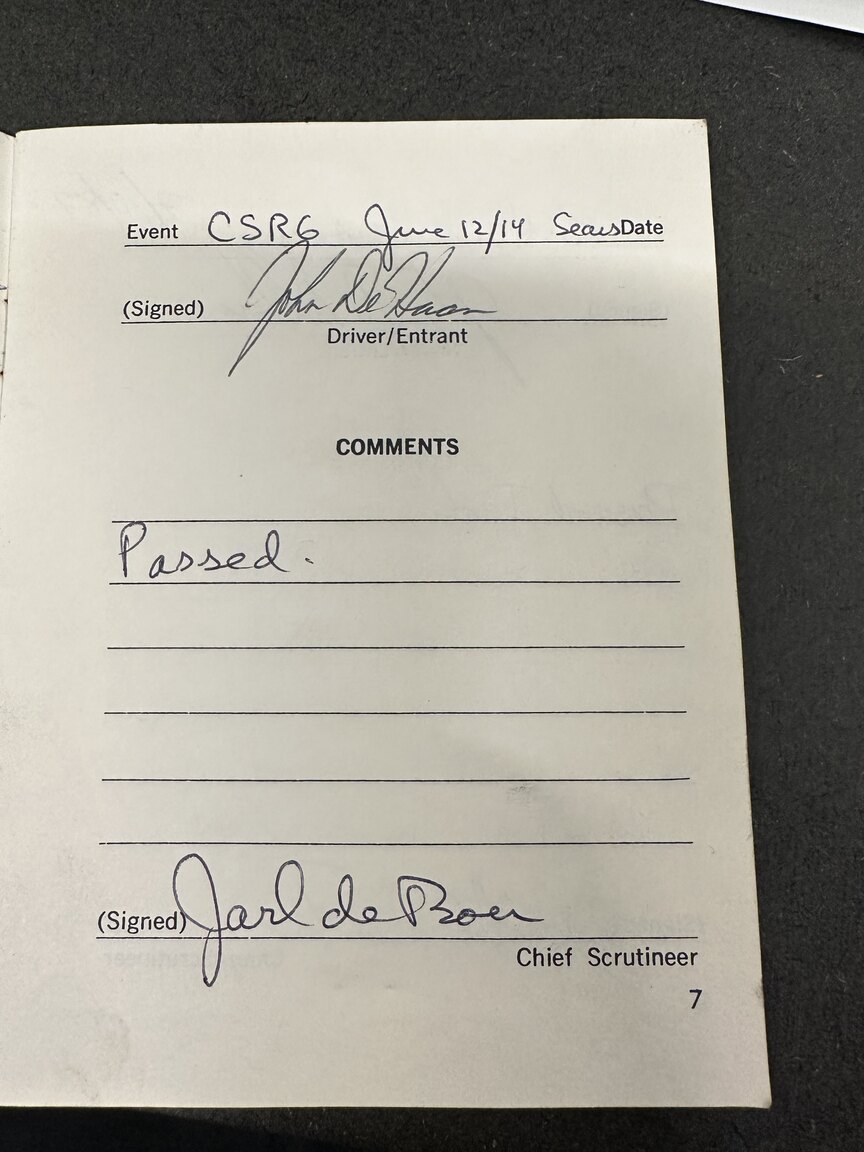 Event CSRG June 12/14 Sears Date
(Signed) John DeHaan
Driver/Entrant
COMMENTS
Passed.
(Signed) Jarl de Boer
Chief Scrutineer
7